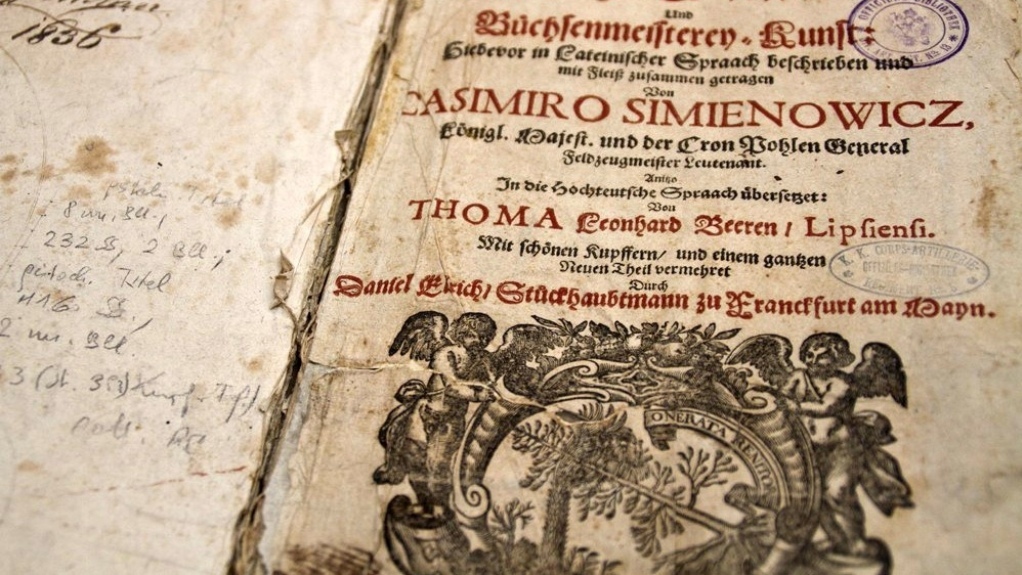 1836
8 nn. Bll.,
232 S., 2 Bll.;
Titel
116 S.,
2 nn. Bll.
Und
Büchsenmeisterey-Kunst:
Hiebevor in Lateinischer Spraach beschrieben und
mit Fleiß zusammen getragen
Von
CASIMIRO SIMIENOWICZ,
Königl. Majest. und der Cron Pohlen General
Feldzeugmeister Leutenant.
Anitzo
In die Hochteutsche Spraach übersetzet:
Von
THOMA Leonhard Beeren / Lipsiensi.
Mit schönen Kupffern/ und einem gantzen
Neuen Theil vermehret
Durch
Daniel Elrich/ Stückhaubtmann zu Franckfurt am Mayn.
K. K. CORPS-ARTILLERIE
ONERATA RENITOR